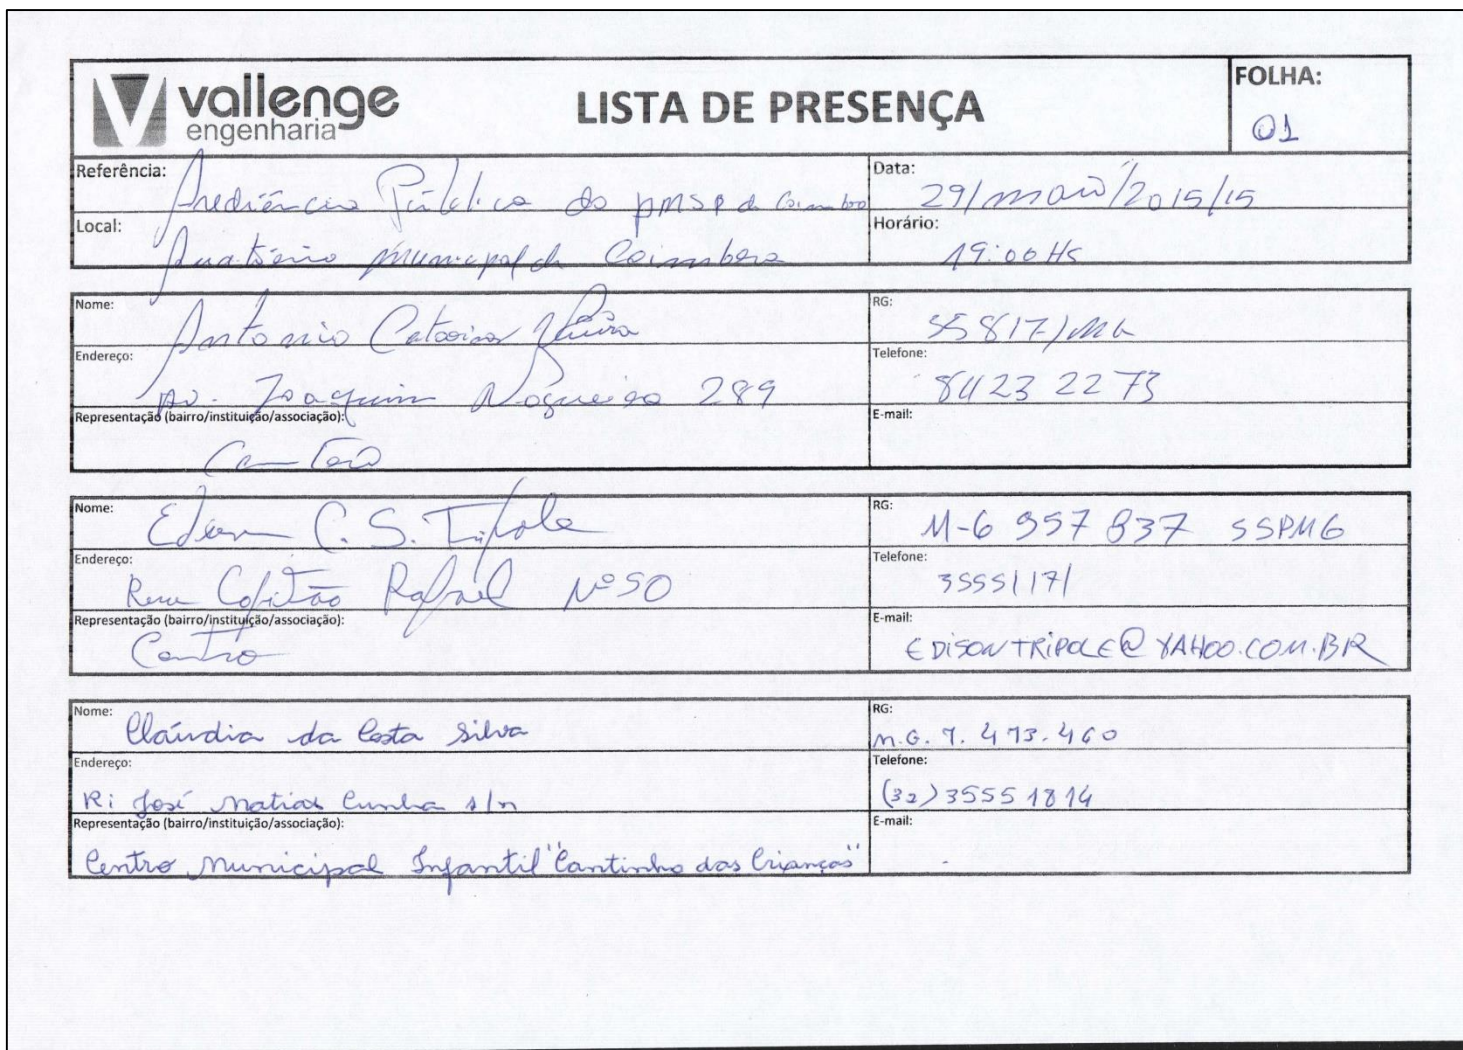 vallenge
engenharia
LISTA DE PRESENÇA
FOLHA:
01
Referência: Audiência Pública do PMSB de Coimbra
Data: 29/maio/2015/15
Local: Municipal de Coimbra
Horário: 19:00 Hs
Nome: Antonio
RG: 55817/MG
Endereço: Av. Joaquim Nogueira 289
Telefone: 8423 2273
Representação (bairro/instituição/associação):
E-mail:
Nome: C. S. Tripole
RG: M-6 957 837 SSPMG
Endereço: Rua Capitão Rafael Nº 50
Telefone: 35551171
Representação (bairro/instituição/associação): Centro
E-mail: EDISONTRIPOLE@YAHOO.COM.BR
Nome: Cláudia da Costa Silva
RG: M.G. 7. 473. 460
Endereço: R: José Matias Cunha s/n
Telefone: (32) 3555 1814
Representação (bairro/instituição/associação): Centro Municipal Infantil "Cantinho das Crianças"
E-mail: -